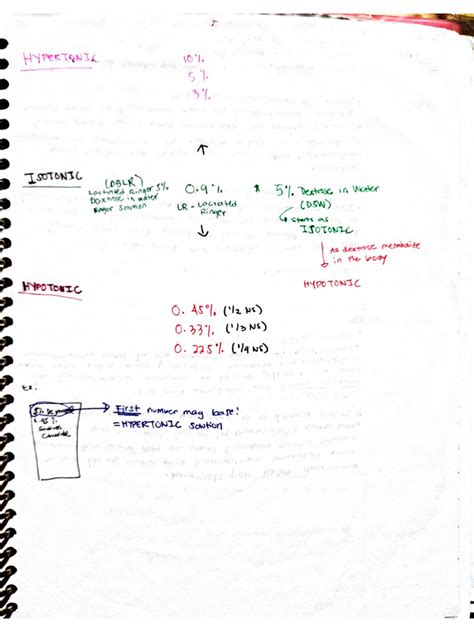 HYPERTONIC 10%
5%
3%
↑
ISOTONIC (D5LR) 0.9% * 5% Dextrose in Water
Lactated Ringer 5% LR - Lactated (D5W)
Dextrose in water Ringer ↳ starts as
Ringer Solution ISOTONIC
↓
As dextrose metabolize
in the body
HYPOTONIC HYPOTONIC
0.45% (1/2 NS)
0.33% (1/3 NS)
0.225% (1/4 NS)
Ex.
5% First number may base!
0.45% = HYPERTONIC solution
Sodium